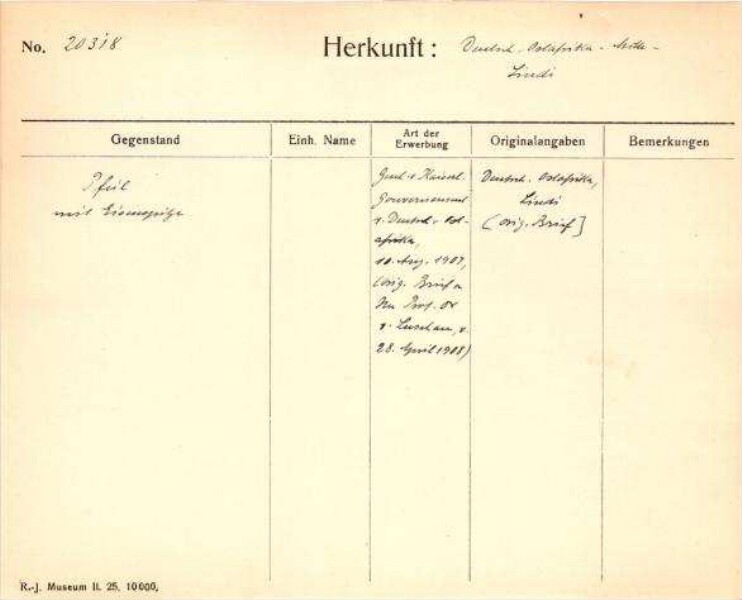 No. 20318
Herkunft: Deutsch. Ostafrika -
Lindi
Gegenstand
Einh. Name
Art der
Erwerbung
Originalangaben
Bemerkungen
Pfeil
mit Eisenspitze
Gesch. v. Kaiserl.
Gouvernement
v. Deutsch. Ost-
afrika,
10. Aug. 1907,
(orig. Brief
Prof. Dr
v. Luschan, v.
28. April 1908)
Deutsch. Ostafrika,
Lindi
(orig. Brief]
R.-J. Museum II. 25. 10000,